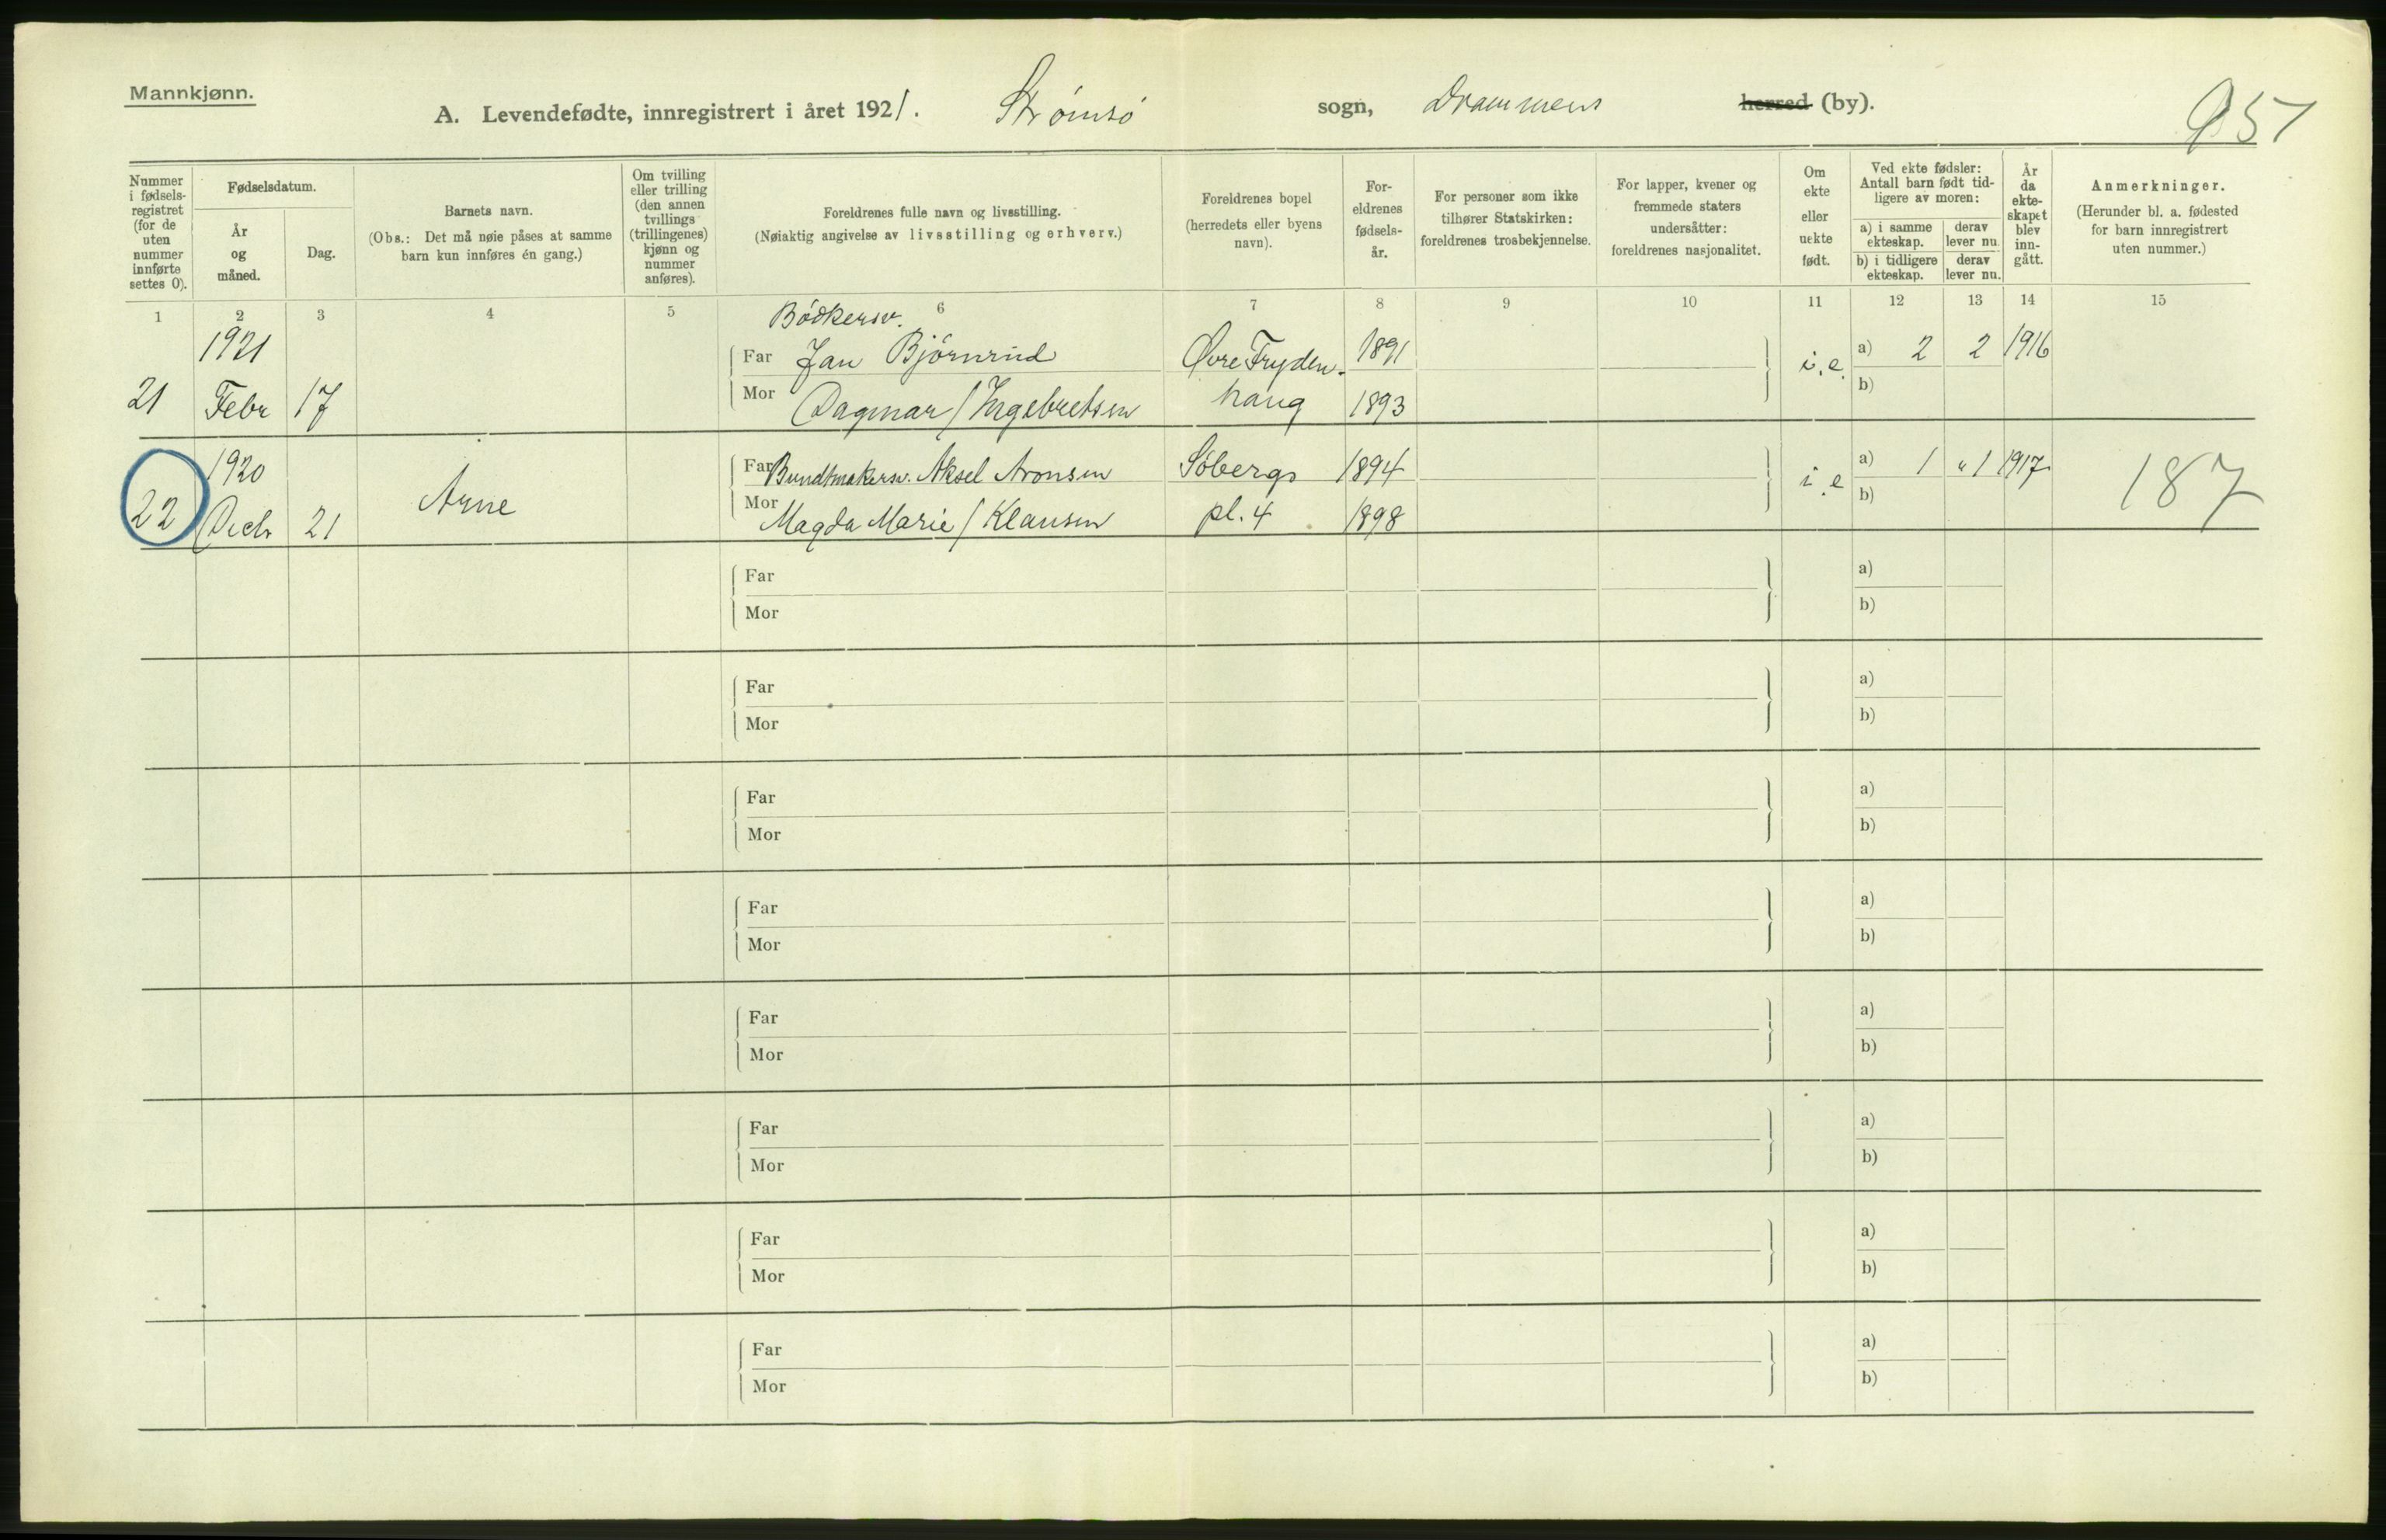 Mannkjønn.
A. Levendefødte, innregistrert i året 1921. Strømsö sogn, Drammens herred (by).
Nummer i fødsels-registret (for de uten nummer innførte settes 0).
Fødselsdatum.
År og måned.
Dag.
Barnets navn.
(Obs.: Det må nøie påses at samme barn kun innføres én gang.)
Om tvilling eller trilling (den annen tvillings (trillingenes) kjønn og nummer anføres).
Foreldrenes fulle navn og livsstilling.
(Nøiaktig angivelse av livsstilling og erhverv.)
Foreldrenes bopel
(herredets eller byens navn).
For-eldrenes fødsels-år.
For personer som ikke tilhører Statskirken: foreldrenes trosbekjennelse.
For lapper, kvener og fremmede staters undersåtter: foreldrenes nasjonalitet.
Om ekte eller uekte født.
Ved ekte fødsler: Antall barn født tid-ligere av moren:
a) i samme ekteskap.
derav lever nu.
b) i tidligere ekteskap.
derav lever nu.
År da ekte-skapet blev inn-gått.
Anmerkninger.
(Herunder bl. a. fødested for barn innregistrert uten nummer.)
1 2 3 4 5 6 7 8 9 10 11 12 13 14 15
Bödkersv.
1921 Far Jan Björnrud Øvre Fryden- 1891 i.e. a) 2 2 1916
21 Febr 17 Mor Dagmar / Ingebretsen haug 1893 b)
1920 Far Bundtmakersv. Aksel Aronsen Söbergs 1894 i.e a) 1 " 1 1917
22 Decb 21 Arne Mor Magda Marie / Klausen pl. 4 1898 b) 187
Far a)
Mor b)
Far a)
Mor b)
Far a)
Mor b)
Far a)
Mor b)
Far a)
Mor b)
Far a)
Mor b)
Far a)
Mor b)
Far a)
Mor b)